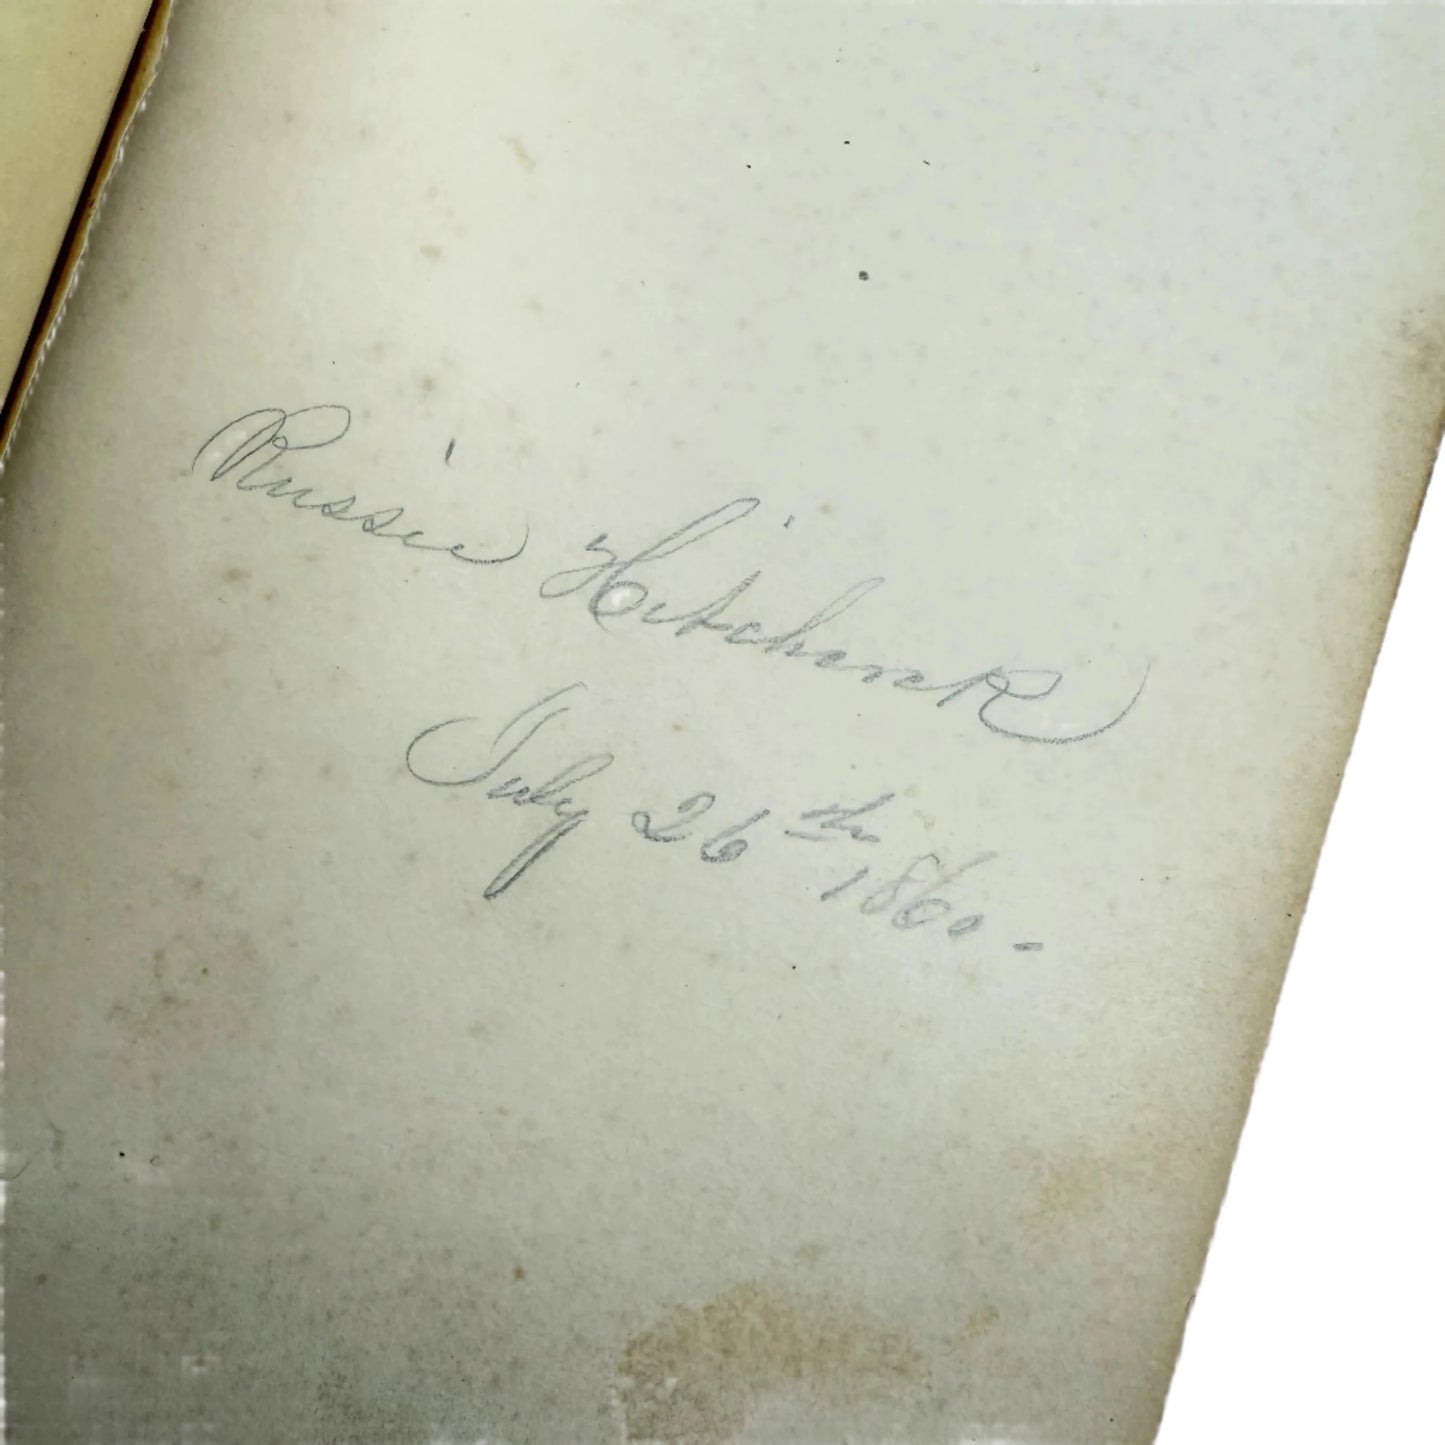 Russie Hitchcock
July 26th 1860.-